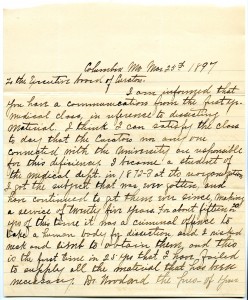 Columbia Mo Mar 25th 1897
To the Executive Board of Curators.
I am informed, that
you have a communication from the first yr
Medical class, in reference to dissecting
material. I think I can satisfy the class
to day that the Curators nor any one
connected with the University are responsible
for this deficiency. I became a student of
the medical dept. in 1872-3 at its reorganization
I got the subject that was ever gotten, and
have continued to get them ever since, (making
a service of twenty five years. For about fifteen
yrs of this time it was a criminal offence to
take a human body for dissection and I risked
neck and to obtain them, and this
is the first time in 25 yrs that I have, failed
to supply all the material that has been
necessary. Dr Woodard the Pres. of